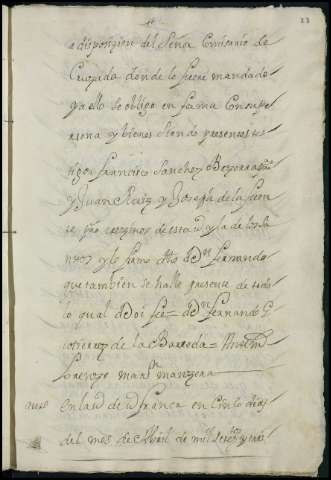 23
a disposizion del Señor Comisario de
Cruzada donde le fuere mandado
y a ello se obligo en forma Con su per
sona y bienes siendo presentes tes
tigos francisco Sanchez
y Juan Ruiz y Joseph de la fuen
te vezinos de esta y la de
y lo firmo dho Dn fernando
que tambien se halla presente de todo
lo qual Doi fee = Dn fernando G
utierrez de la Barreda = Antemi
Lorenzo martin manzera
En la de franca en Cinco dias
del mes de Abril de mil y